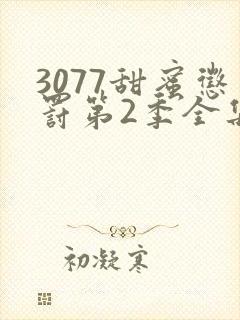 3077甜蜜惩
罚第2季全集
初凝寒